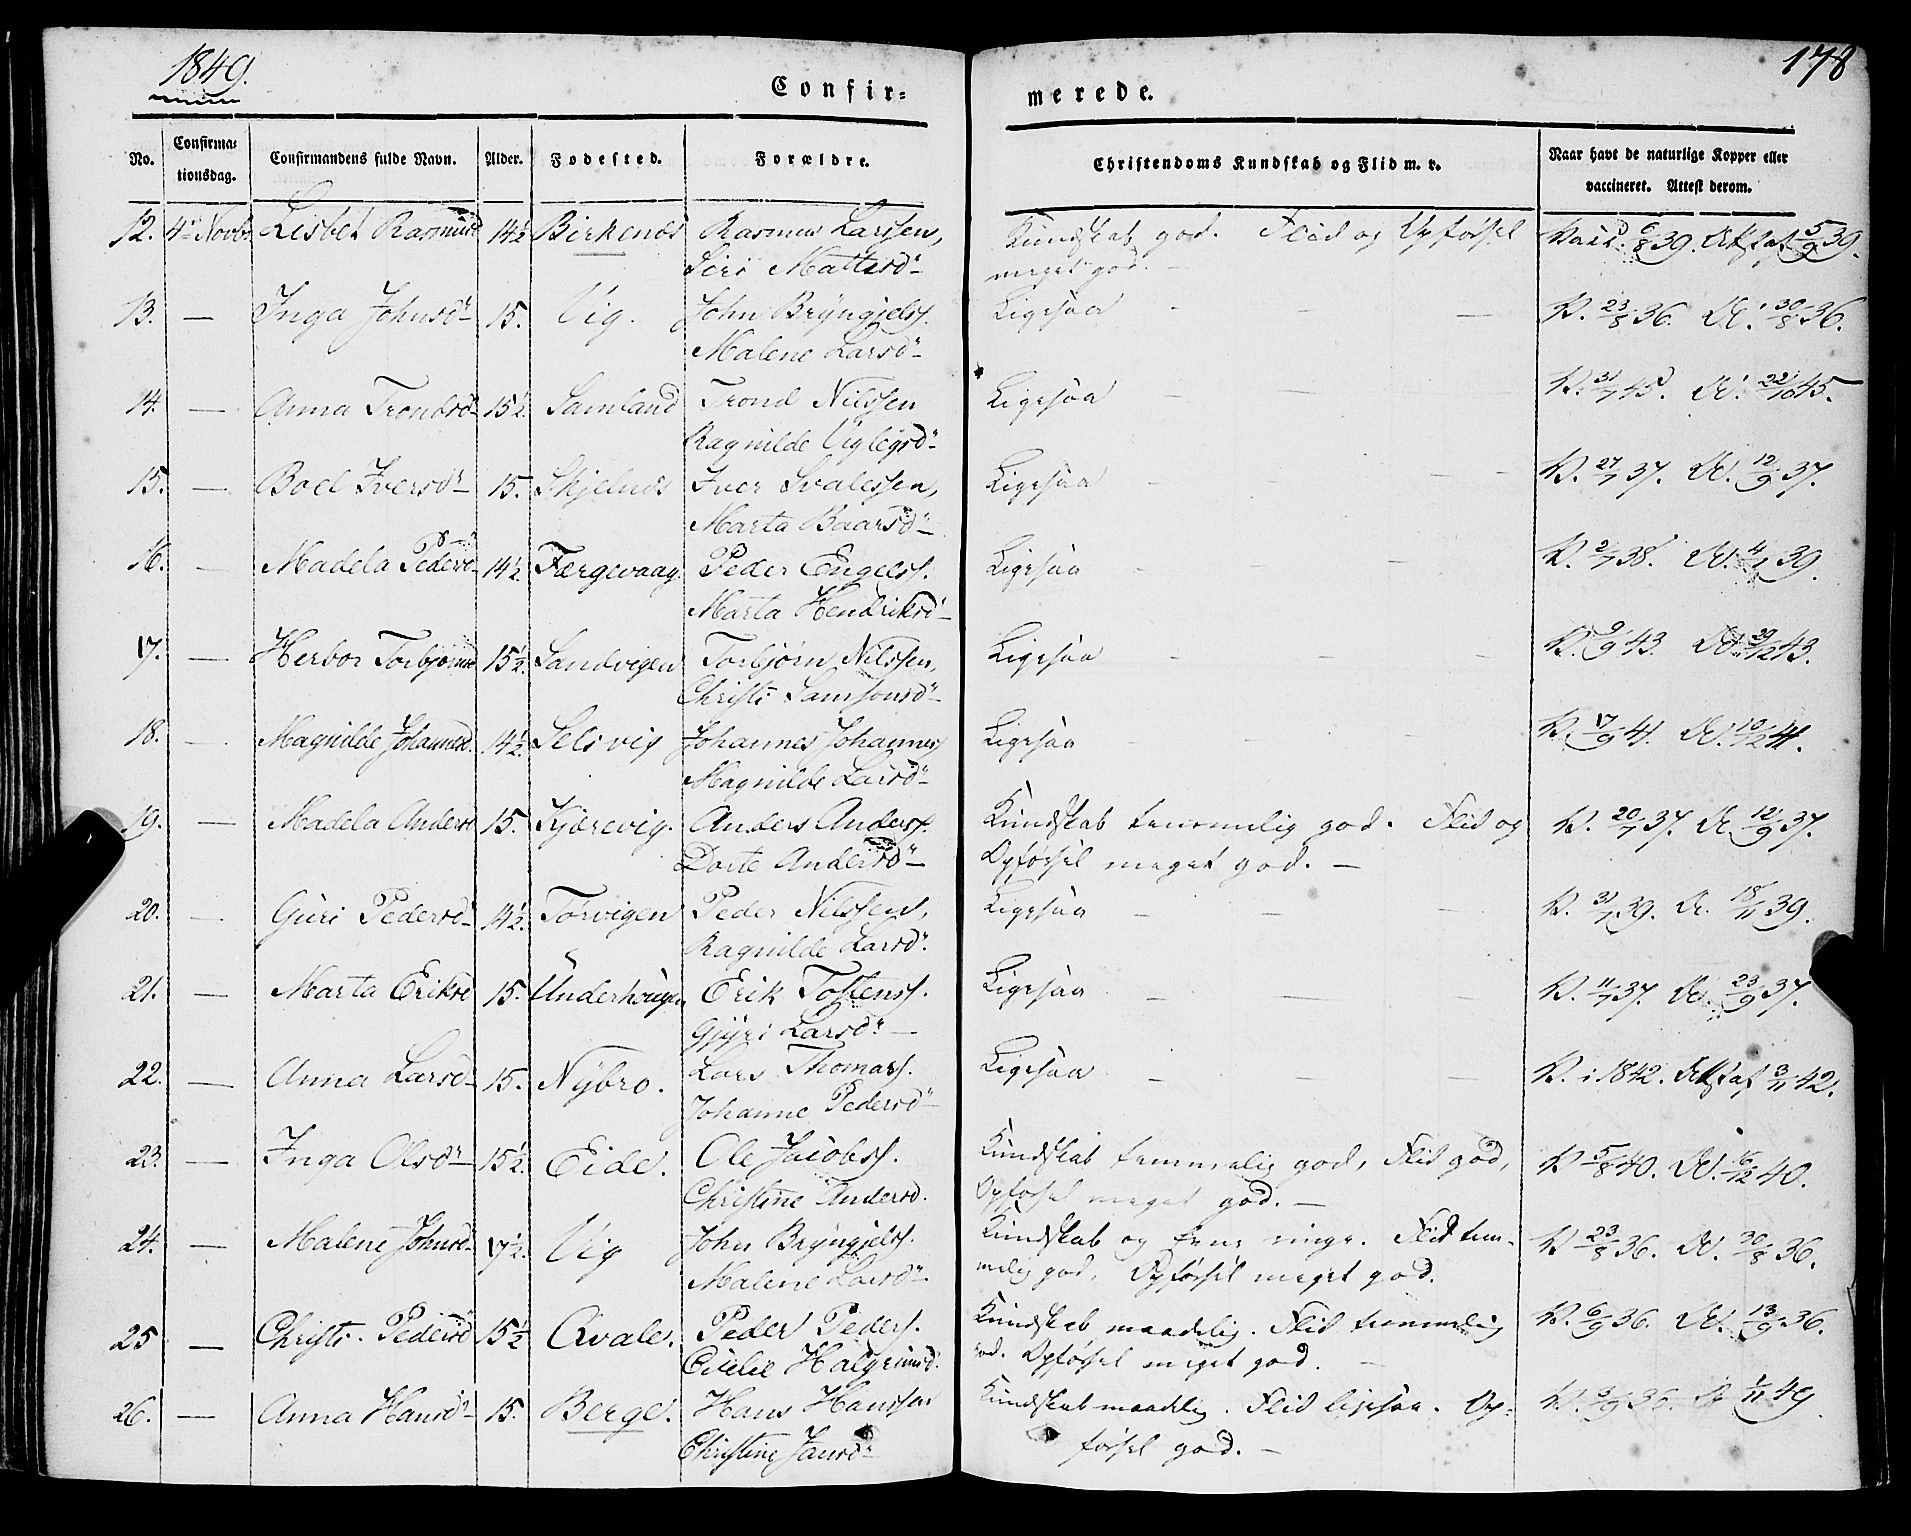 1849.
178
Confir=
merede.
No.
Confirma=
tionsdag.
Confirmandens fulde Navn.
Alder.
Fødested.
Forældre.
Christendoms Kundskab og Flid m. v.
Naar havt de naturlige Kopper eller
vaccineret. Attest derom.
12. 4de Novbr Lisbet Rasmusd 14½ Birkenæs Rasmus Larssen, Kundskab god. Flid og Opførsel Vacc. 6/8 39. Att. af 5/9 39.
Siri Mattisd- meget god. -
13. — Inga Johnsd- 15. Vig. John Bryngjelss. Ligesaa - - — V. 23/8 36. At. 30/8 36.
Malene Larsd-
14. — Anna Trondsd- 15½ Samland Trond Nilssen Ligesaa V. 31/7 45. At. 22/10 45.
Ragnilde Viglegsd-
15. — Boel Iversd- 15. Skjelnæs Iver Svalessen, Ligesaa - - - V. 27/7 37. At. 12/9 37.
Marta Baarsd-
16. — Madela Pedersd- 14½ Færgevaag. Peder Engelss. Ligesaa - - - V. 2/7 38. At. 4/1 39.
Marta Hendriksd-
17. — Herbor Torbjørnsd 15½ Sandvigen Torbjørn Nilssen, Ligesaa - - - V. 9/9 43. At. 29/12 43.
Christi Samsonsd-
18. — Magnilde Johannesd. 14½ Selsvig Johannes Johanness Ligesaa - - V. 17/9 41. At. 10/12 41.
Magnilde Larsd-
19. — Madela Andersd 15. Kjærevig. Anders Anderss. Kundskab temmelig god. Flid og V. 20/7 37. At. 12/9 37.
Dorte Andersd- Opførsel meget god. —
20. — Guri Pedersd- 14½. Torvigen Peder Nilssen, Ligesaa - - - V. 31/7 39. At. 18/11 39.
Ragnilde Larsd.
21. — Marta Eriksd 15. Underhougen Erik Tostenss. Ligesaa - - - V. 11/7 37. At. 23/9 37.
Gjyri Larsd. —
22. — Anna Larsd- 15. Nybro. Lars Thomass. Ligesaa - - - V. i 1842. Att. af 3/11 42.
Johanne Pedersd-
23. — Inga Olsd- 15½ Eide. Ole Jacobss. Kundskab temmelig god, Flid god, V. 5/8 40. At. 16/12 40.
Christine Andersd. Opførsel meget god. —
24. — Malene Johnsd- 17½. Vig John Bryngjelss. Kundskab og Evne ringe. Flid tem- V. 23/8 36. At. 30/8 36.
Malene Larsd- melig god. Opførsel meget god.
25 — Christi Pedersd 15½ Qvale. Peder Peders. Kundskab maadelig. Flid temmelig V. 6/9 36. At. 13/9 36.
Cicilie Halgrimsd. god. Opførsel meget god. —
26. — Anna Hansd- 15. Berge. Hans Hanssen Kundskab maadelig. Flid ligesaa. Op- V. 5/9 36. At 1/11 49
Christine Jansd- førsel god. —